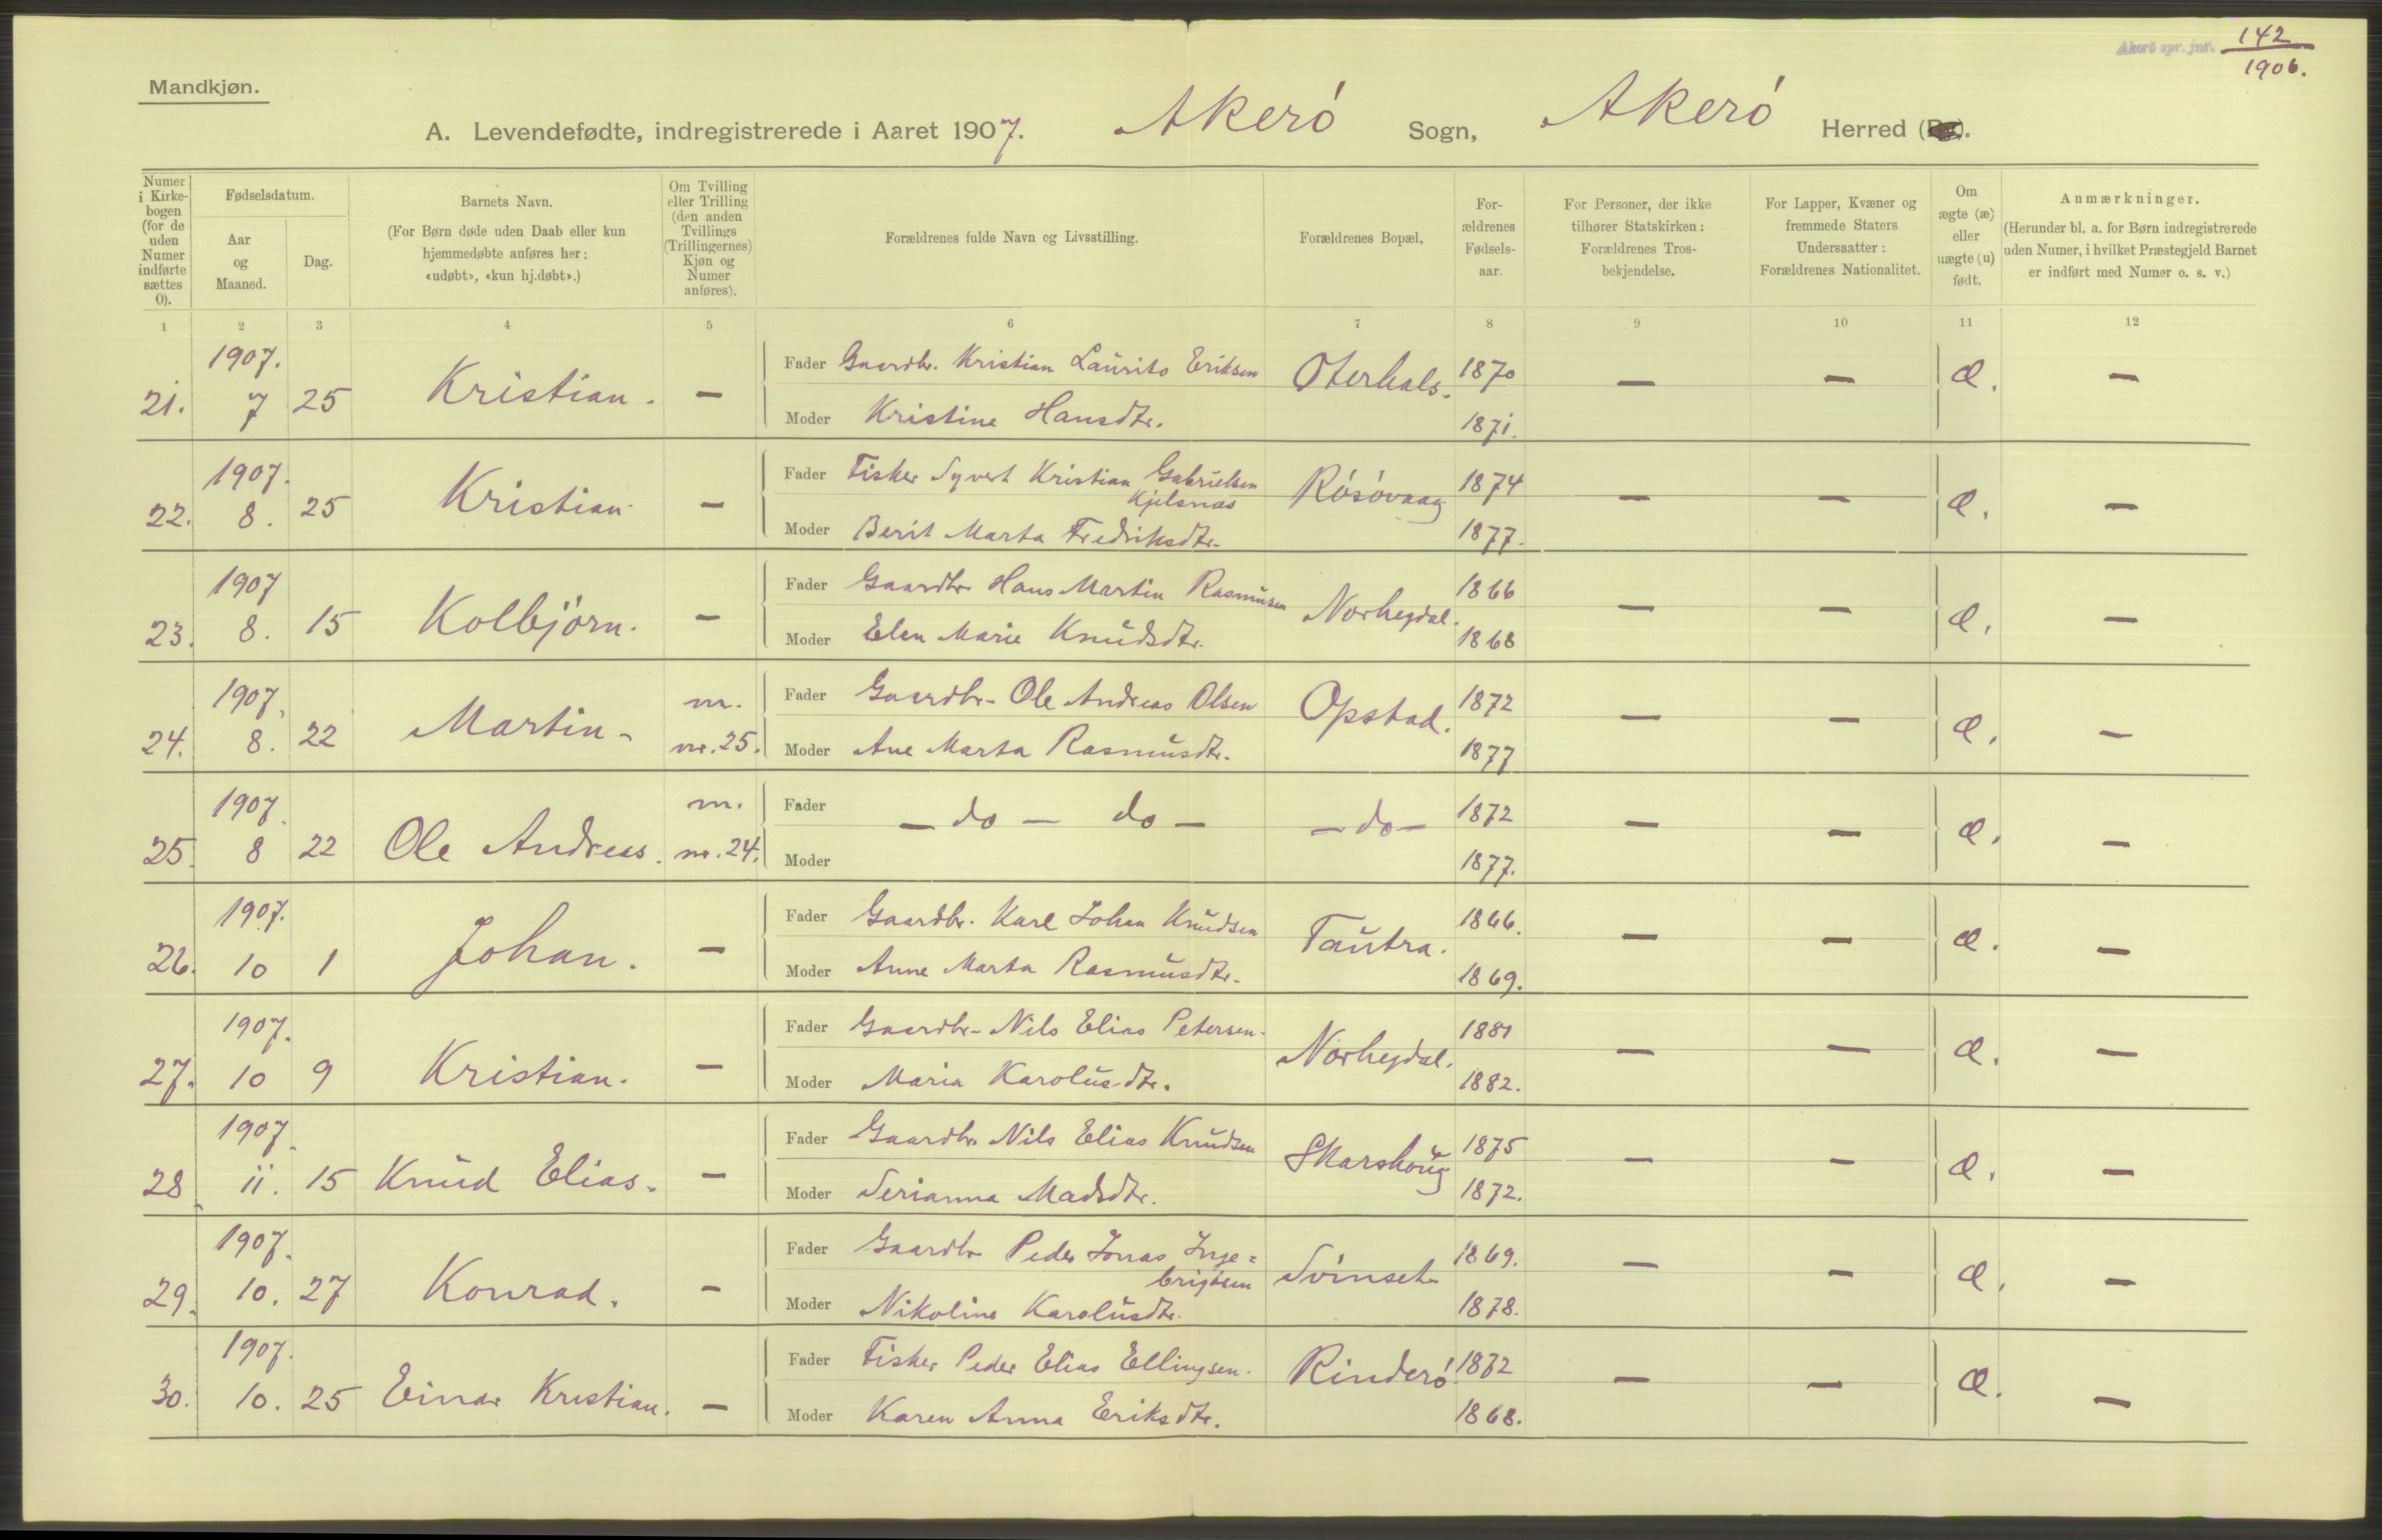 Akerö spr. jnr. 142
1906.
Mandkjøn.
A. Levendefødte, indregistrerede i Aaret 1907. Akerö Sogn, Akerö Herred (By).
Numer i Kirkebogen (for de uden Numer indførte sættes 0).
Fødselsdatum.
Aar og Maaned.
Dag.
Barnets Navn.
(For Børn døde uden Daab eller kun hjemmedøbte anføres her: «udøbt», «kun hj.døbt».)
Om Tvilling eller Trilling (den anden Tvillings (Trillingernes) Kjøn og Numer anføres).
Forældrenes fulde Navn og Livsstilling.
Forældrenes Bopæl.
Forældrenes Fødselsaar.
For Personer, der ikke tilhører Statskirken: Forældrenes Trosbekjendelse.
For Lapper, Kvæner og fremmede Staters Undersaatter: Forældrenes Nationalitet.
Om ægte (æ) eller uægte (u) født.
Anmærkninger.
(Herunder bl. a. for Børn indregistrerede uden Numer, i hvilket Præstegjeld Barnet er indført med Numer o. s. v.)
1 2 3 4 5 6 7 8 9 10 11 12
21. 1907. 7 25 Kristian. — Fader Gaardbr. Kristian Laurits Eriksen Oterhals. 1870 — — æ. —
Moder Kristine Hansdtr. 1871.
22. 1907. 8. 25 Kristian — Fader Fisker Syvert Kristian Gabrielsen Kjelsnæs Rösövaag 1874 — — æ. —
Moder Berit Marta Fredriksdtr. 1877.
23. 1907 8. 15 Kolbjörn. — Fader Gaardbr Hans Martin Rasmusen Norheydal. 1866 — — æ. —
Moder Elen Marie Knudsdtr. 1868
24. 1907. 8. 22 Martin - m. nr. 25. Fader Gaardbr. Ole Andreas Olsen Opstad. 1872 — — æ. —
Moder Ane Marta Rasmusdtr. 1877
25. 1907. 8 22 Ole Andreas. m. nr. 24. Fader — do — do — — do — 1872 — — æ. —
Moder 1877.
26. 1907. 10 1 Johan. — Fader Gaardbr. Karl Johan Knudsen Tautra. 1866. — — æ. —
Moder Anne Marta Rasmusdtr. 1869.
27. 1907. 10 9 Kristian. — Fader Gaardbr. Nils Elias Petersen. Norheydal. 1881 — — æ. —
Moder Maria Karolusdtr. 1882.
28. 1907. 11. 15 Knud Elias. — Fader Gaardbr Nils Elias Knudsen Skarshoug 1875 — — æ. —
Moder Serianna Madsdtr. 1872.
29. 1907. 10. 27 Konrad. — Fader Gaardbr Peder Jonas Inge=
brigtsen Svinset 1869. — — æ. —
Moder Nikoline Karolusdtr. 1878.
30. 1907. 10. 25 Einar Kristian. — Fader Fisker Peder Elias Ellingsen. Rinderö. 1872 — — æ. —
Moder Karen Anna Eriksdtr. 1868.